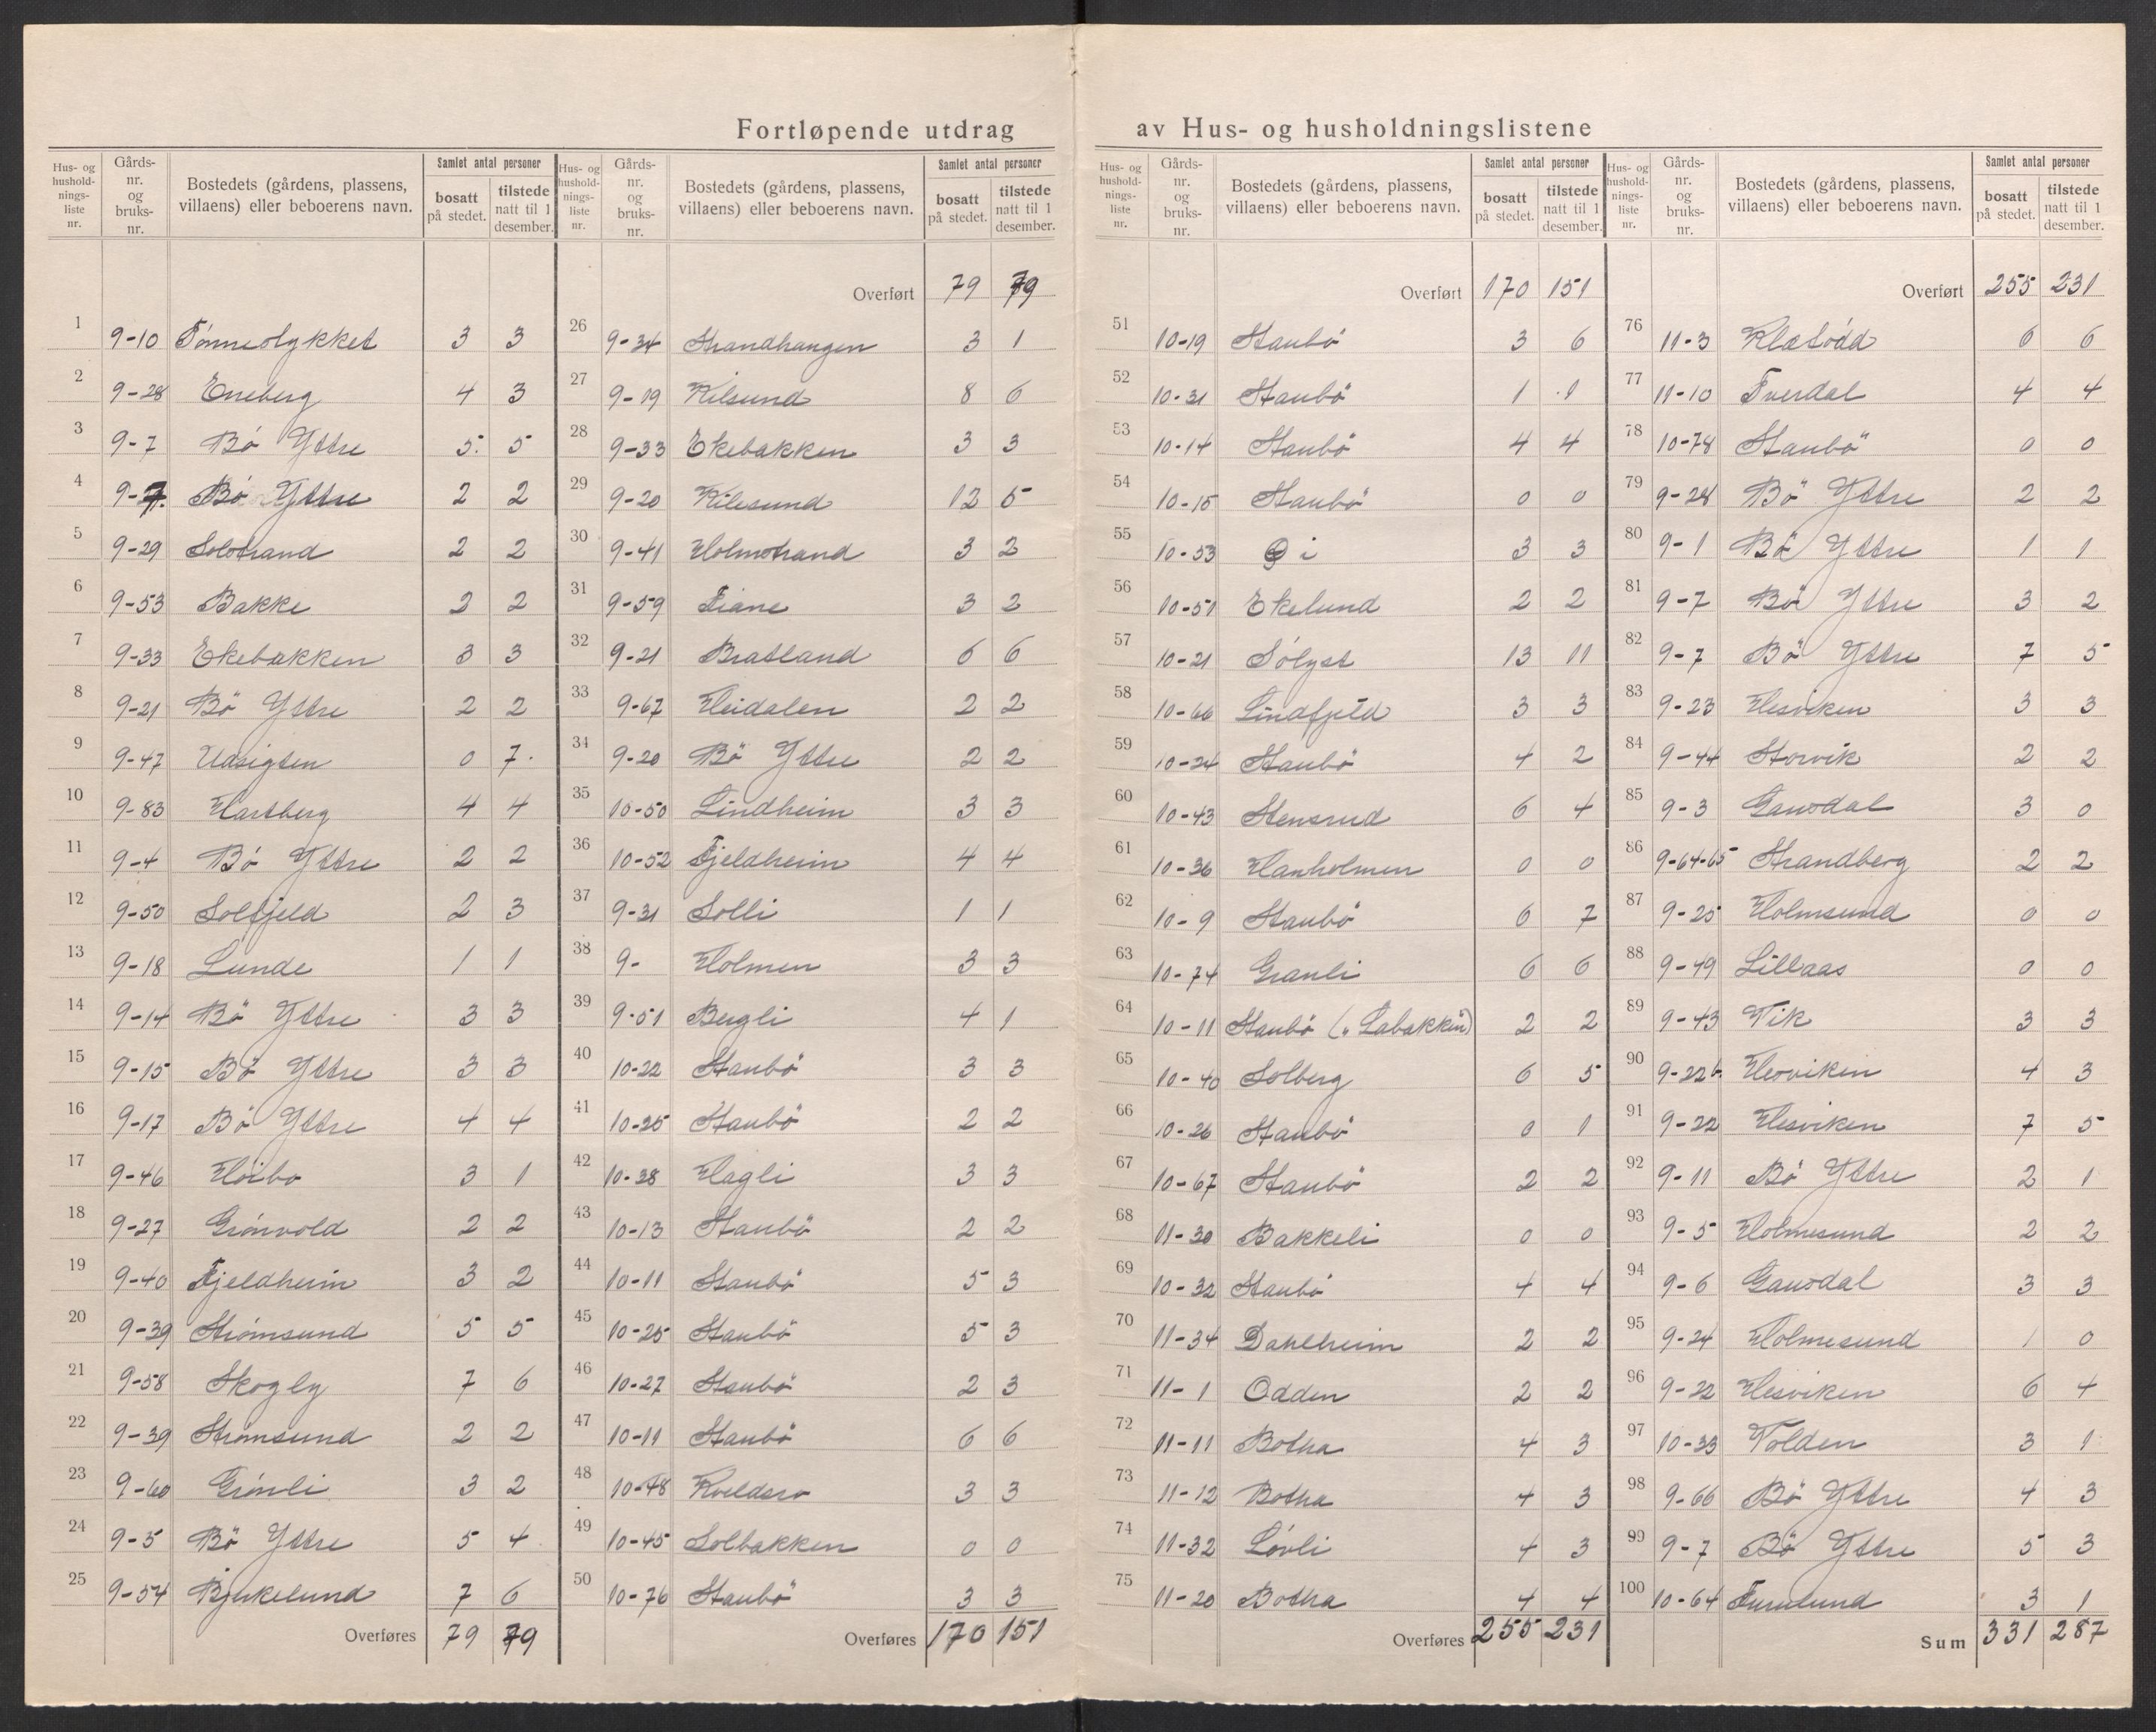 Fortløpende utdrag av Hus- og husholdningslistene
Hus- og husholdnings-liste nr. | Gårds-nr. og bruks-nr. | Bostedets (gårdens, plassens, villaens) eller beboerens navn. | Samlet antal personer bosatt på stedet. | tilstede natt til 1 desember.
1 9-10 Tønnestykket 3 3
2 9-28 Eneberg 4 3
3 9-7 Bö Yttre 5 5
4 9-7 Bö Yttre 2 2
5 9-29 Solstrand 2 2
6 9-53 Bakke 2 2
7 9-33 Ekebakken 3 3
8 9-21 Bö Yttre 2 2
9 9-47 Udsigten 0 7
10 9-83 Hartberg 4 4
11 9-4 Bö Yttre 2 2
12 9-50 Solfjeld 2 3
13 9-18 Lunde 1 1
14 9-14 Bö Yttre 3 3
15 9-15 Bö Yttre 3 3
16 9-17 Bö Yttre 4 4
17 9-46 Höibo 3 1
18 9-27 Grönvold 2 2
19 9-40 Fjeldheim 3 2
20 9-39 Strömsund 5 5
21 9-58 Skogly 7 6
22 9-39 Strömsund 2 2
23 9-60 Grönli 3 2
24 9-5 Bö Yttre 5 4
25 9-54 Bjerkelund 7 6
Overføres 79 79
Hus- og husholdnings-liste nr. | Gårds-nr. og bruks-nr. | Bostedets (gårdens, plassens, villaens) eller beboerens navn. | Samlet antal personer bosatt på stedet. | tilstede natt til 1 desember.
Overført 79 79
26 9-34 Strandhaugen 3 1
27 9-19 Kilsund 8 6
28 9-33 Ekebakken 3 3
29 9-20 Kilesund 12 5
30 9-41 Holmstrand 3 2
31 9-59 Fiane 3 2
32 9-21 Bratland 6 6
33 9-67 Heidalen 2 2
34 9-20 Bö Yttre 2 2
35 10-50 Lindheim 3 3
36 10-52 Fjeldheim 4 4
37 9-31 Solli 1 1
38 9- Holmen 3 3
39 9-51 Bergli 4 1
40 10-22 Staubö 3 3
41 10-25 Staubö 2 2
42 10-28 Hagli 3 3
43 10-13 Staubö 2 2
44 10-11 Staubö 5 3
45 10-25 Staubö 5 3
46 10-27 Staubö 2 3
47 10-11 Staubö 6 6
48 10-48 Kveldsro 3 3
49 10-45 Solbakken 0 0
50 10-76 Staubö 3 3
Overføres 170 151
Hus- og husholdnings-liste nr. | Gårds-nr. og bruks-nr. | Bostedets (gårdens, plassens, villaens) eller beboerens navn. | Samlet antal personer bosatt på stedet. | tilstede natt til 1 desember.
Overført 170 151
51 10-19 Staubö 3 6
52 10-31 Staubö 1 1
53 10-14 Staubö 4 4
54 10-15 Staubö 0 0
55 10-53 Öi 3 3
56 10-51 Ekelund 2 2
57 10-21 Sölyst 13 11
58 10-66 Lindfjeld 3 3
59 10-24 Staubö 4 2
60 10-43 Stensrud 6 4
61 10-36 Hanholmen 0 0
62 10-9 Staubö 6 7
63 10-74 Granli 6 6
64 10-11 Staubö („Labakken") 2 2
65 10-40 Solberg 6 5
66 10-26 Staubö 0 1
67 10-67 Staubö 2 2
68 11-30 Bakkeli 0 0
69 10-32 Staubö 4 4
70 11-34 Dahlheim 2 2
71 11-1 Odden 2 2
72 11-11 Botna 4 3
73 11-12 Botna 4 3
74 11-32 Lövli 4 3
75 11-20 Botna 4 4
Overføres 255 231
Hus- og husholdnings-liste nr. | Gårds-nr. og bruks-nr. | Bostedets (gårdens, plassens, villaens) eller beboerens navn. | Samlet antal personer bosatt på stedet. | tilstede natt til 1 desember.
Overført 255 231
76 11-3 Klatödd 6 6
77 11-10 Tverdal 4 4
78 10-78 Staubö 0 0
79 9-28 Bö Yttre 2 2
80 9-1 Bö Yttre 1 1
81 9-7 Bö Yttre 3 2
82 9-7 Bö Yttre 7 5
83 9-23 Hesviken 3 3
84 9-44 Storvik 2 2
85 9-3 Gausdal 3 0
86 9-64-65 Strandberg 2 2
87 9-25 Holmsund 0 0
88 9-49 Lillaas 0 0
89 9-43 Vik 3 3
90 9-22b. Hesviken 4 3
91 9-22 Hesviken 7 5
92 9-11 Bö Yttre 2 1
93 9-5 Holmesund 2 2
94 9-6 Gausdal 3 3
95 9-24 Holmesund 1 0
96 9-22 Hesviken 6 4
97 10-33 Volden 3 1
98 9-66 Bö Yttre 4 3
99 9-7 Bö Yttre 5 3
100 10-64 Furulund 3 1
Sum 331 287